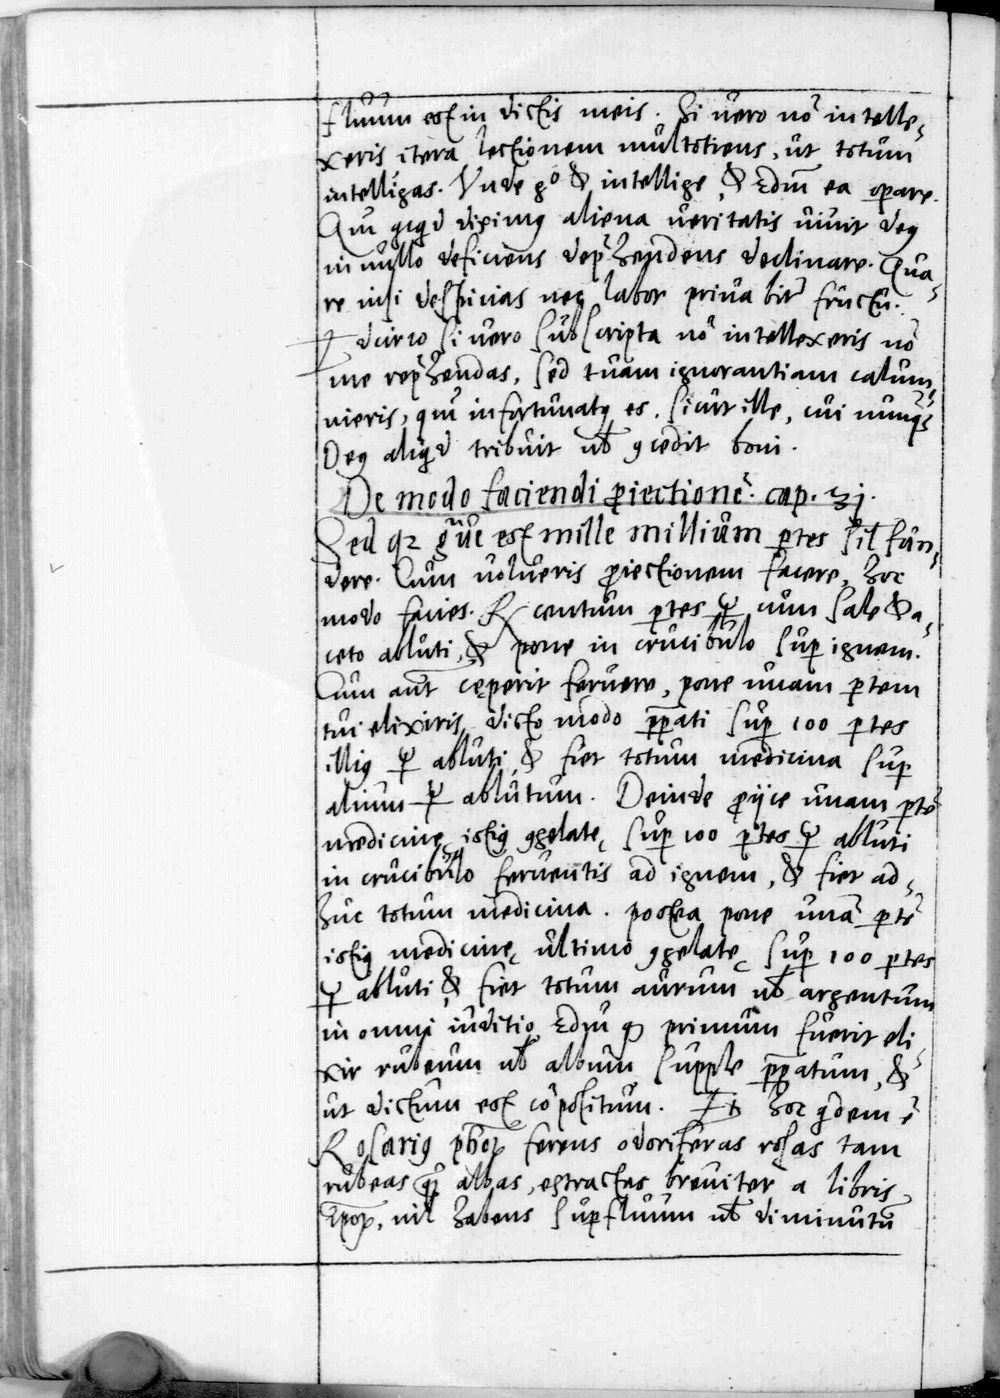 fluum est in dictis meis. Si vero nõ intelle-
xeris itera lectionem multotiens, ut totum
intelligas. Vnde gº & intellige, & ea opare.
aliena veritatis vivit deꝰ
in nullo deficiens dep̃hendens declinare. Qua-
re nisi despicias neq labor privabit fructu.
Idcirco si vero subscripta nõ intellexeris nõ
me rep̃hendas, sed tuam ignorantiam calum-
nieris, infortunatꝰ es. sicut ille, cui nunq̃
Deꝰ aliqd tribuit ul̃ ꝯcedit boni.
De modo faciendi ꝓiectionẽ. cap. 31.
Sed qꝛ gũe est mille millium ꝑtes sil̃ fun-
dere. Cum volueris ꝓiectionem facere, hoc
modo facies. ℞ centum ꝑtes ☿ cum sale & a-
ceto abluti, & pone in crucibulo suꝑ ignem.
Cum aũt cęperit fervere, pone unam ꝑtem
tui elixiris dicto modo p̃pati suꝑ 100 ꝑtes
illiꝰ ☿ abluti, & fiet totum medicina suꝑ
alium ☿ ablutum. Deinde ꝓijce unam ꝑtẽ
medicinę istiꝰ ꝯgelatę suꝑ 100 ꝑtes ☿ abluti
in crucibulo ferventis ad ignem, & fiet ad-
huc totum medicina. postea pone unã ꝑtẽ
istiꝰ medicinę ultimo ꝯgelatę suꝑ 100 ꝑtes
☿ abluti & fiet totum aurum ul̃ argentum
in omni iuditio, q primum fuerit eli-
xir rubeum ul̃ album supple p̃patum, &
ut dictum est cõpositum. Et hoc qdem ẽ
Rosariꝰ ph̃oꝝ ferens odoriferas rosas tam
rubeas q̃ albas, extractas breviter a libris
ip̃oꝝ, nil habens suꝑfluum ul̃ diminutũ